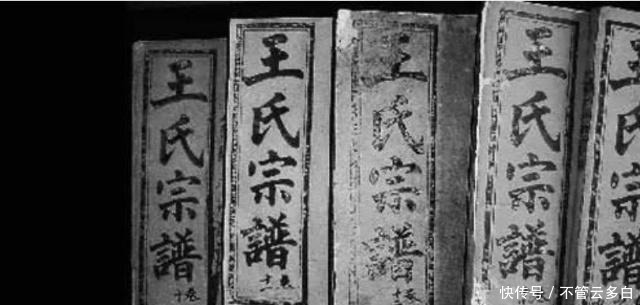 王氏宗譜
王氏宗譜
王氏宗譜
王氏宗譜
王氏宗譜
快传号 / 不管云多白